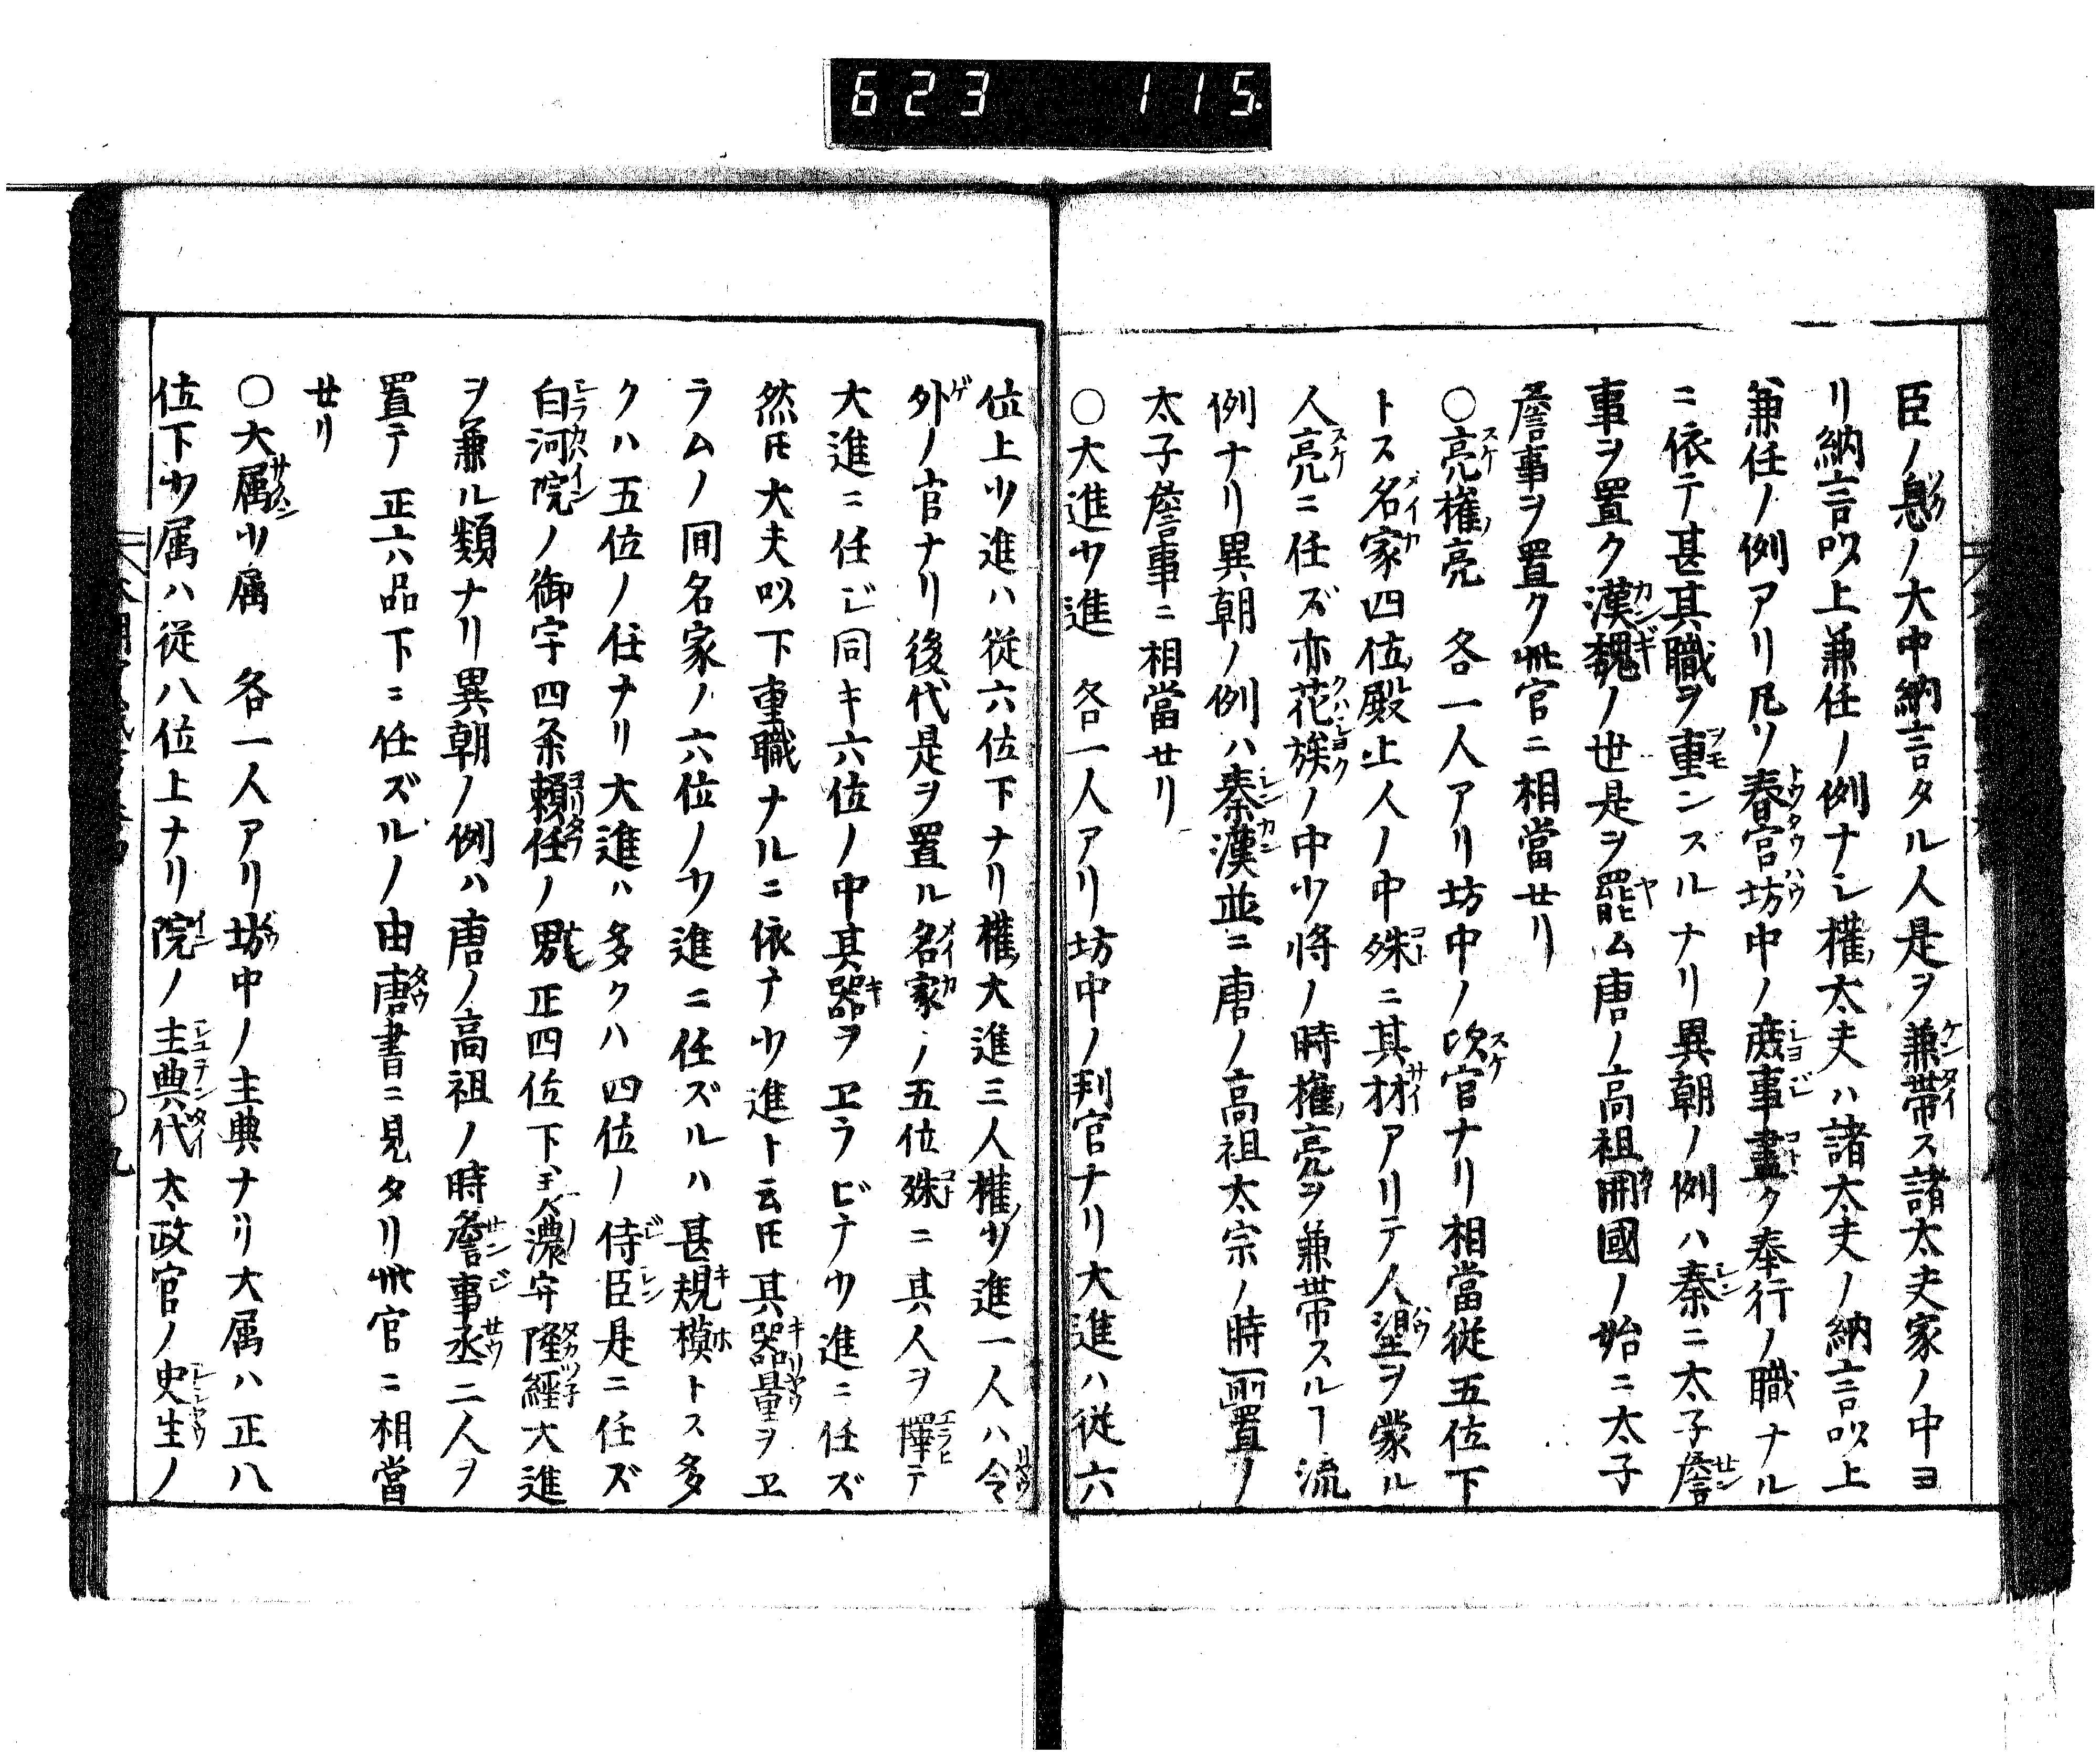 623 115.
臣ノ息ノ大中納言タル人是ヲ兼帯ス諸太夫家ノ中ヨ
リ納言以上兼任ノ例ナシ権太夫ハ諸太夫ノ納言以上
兼任ノ例アリ凡ソ春宮坊中ノ庶事盡ク奉行ノ職ナル
ニ依テ甚其職ヲ重ンスルナリ異朝ノ例ハ秦ニ太子詹
事ヲ置ク漢魏ノ世是ヲ罷ム唐ノ高祖開國ノ始ニ太子
詹事ヲ置ク此官ニ相當せリ
〇亮権亮 各一人アリ坊中ノ次官ナリ相當従五位下
トス名家四位殿上人ノ中殊ニ其材アリテ人望ヲ蒙ル
人亮ニ任ズ亦花族ノ中少将ノ時権亮ヲ兼帯スルヿ流
例ナリ異朝ノ例ハ秦漢並ニ唐ノ高祖太宗ノ時所置ノ
太子詹事ニ相當せリ
〇大進少進 各一人アリ坊中ノ判官ナリ大進ハ従六
位上少進ハ従六位下ナリ権大進三人権少進一人ハ令
外ノ官ナリ後代是ヲ置ル名家ノ五位殊ニ其人ヲ擇テ
大進ニ任じ同キ六位ノ中其器ヲヱラビテ少進ニ任ズ
然𪜈大夫以下重職ナルニ依テ少進ト云𪜈其器量ヲヱ
ラムノ間名家ノ六位ノ少進ニ任ズルハ甚規模トス多
クハ五位ノ任ナリ大進ハ多クハ四位ノ侍臣是ニ任ズ
白河院ノ御宇四条頼任ノ男正四位下美濃守隆經大進
ヲ兼ル類ナリ異朝ノ例ハ唐ノ高祖ノ時詹事丞二人ヲ
置テ正六品下ニ任ズルノ由唐書ニ見タリ此官ニ相當
せリ
〇大属少属 各一人アリ坊中ノ主典ナリ大属ハ正八
位下少属ハ従八位上ナリ院ノ主典代太政官ノ史生ノ
九